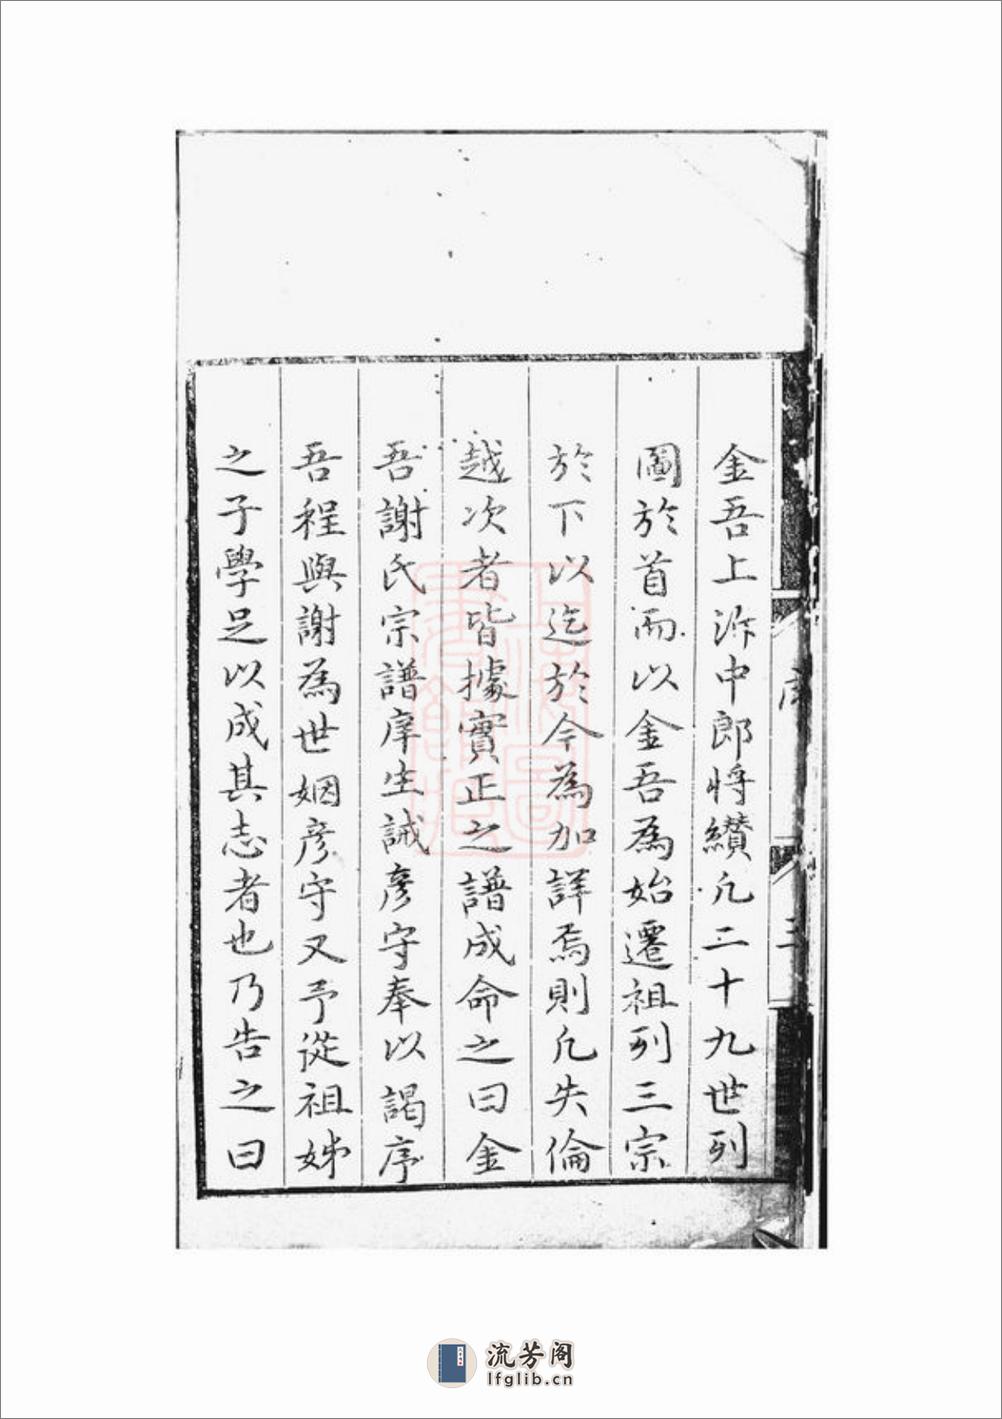 金吾上泝中郎将纘凢二十九世列
圖於首而以金吾為始遷祖列三宗
於下以迄於今為加詳焉則凢失倫
越次者皆據實正之譜成命之曰金
吾謝氏宗譜庠生誡彦守奉以謁序
吾程與謝為世姻彦守又予從祖姊
之子學足以成其志者也乃告之曰
序
三
流芳阁
lfglib.cn